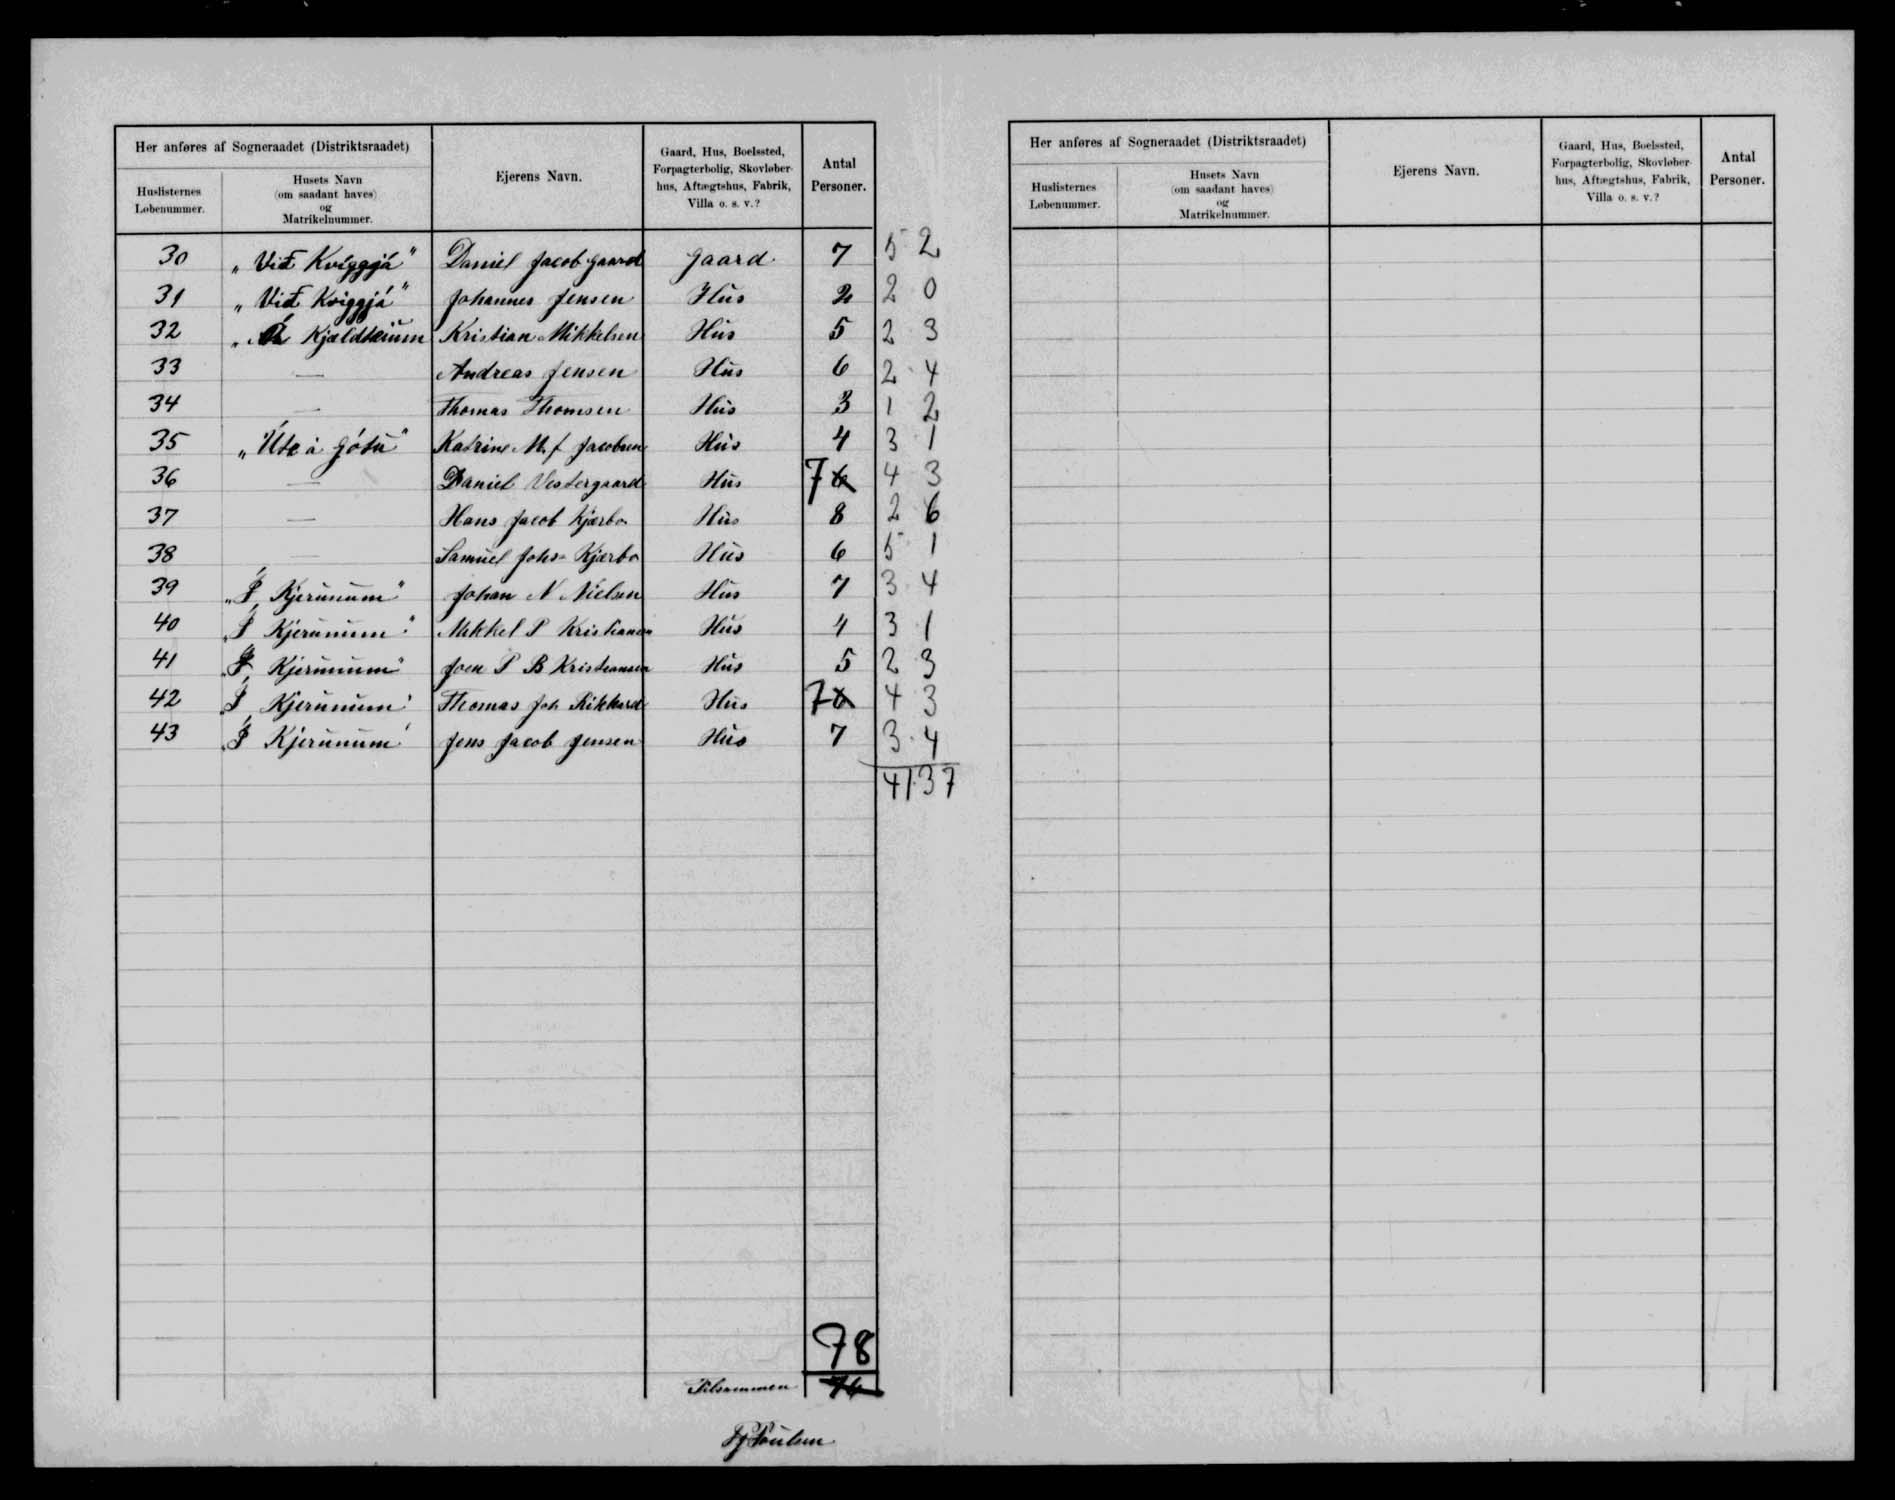 Her anføres af Sogneraadet (Distriktsraadet)
Huslisternes Løbenummer.
Husets Navn (om saadant haves) og Matrikelnummer.
Ejerens Navn.
Gaard, Hus, Boelssted, Forpagterbolig, Skovløberhus, Aftægtshus, Fabrik, Villa o. s. v.?
Antal Personer.
30 „Við Kviggjá" Daniel Jacob Gaard Gaard 7 5 2
31 „Við Kviggjá" Johannes Jensen Hus 2 2 0
32 „Á Kristian Mikkelsen Hus 5 2 3
33 — Andreas Jensen Hus 6 2 4
34 — Thomas Thomsen Hus 3 1 2
35 „Úte á Gótu" Katrine M. f Jacobsen Hus 4 3 1
36 — Daniel Vestergaard Hus 7 6 4 3
37 — Hans Jacob Kjærbo Hus 8 2 6
38 — Samuel Johs Kjærbo Hus 6 5 1
39 „Í Kjerunum" Johan N Nielsen Hus 7 3 4
40 „Í Kjerunum" Mikkel P Kristiansen Hus 4 3 1
41 „Í Kjerunum" Joen P B Kristiansen Hus 5 2 3
42 „Í Kjerunum" Thomas Joh Rikkard Hus 7 6 4 3
43 „Í Kjerunum" Jens Jacob Jensen Hus 7 3 4
41 37
78
Tilsammen 76
Poulsen
Her anføres af Sogneraadet (Distriktsraadet)
Huslisternes Løbenummer.
Husets Navn (om saadant haves) og Matrikelnummer.
Ejerens Navn.
Gaard, Hus, Boelssted, Forpagterbolig, Skovløberhus, Aftægtshus, Fabrik, Villa o. s. v.?
Antal Personer.